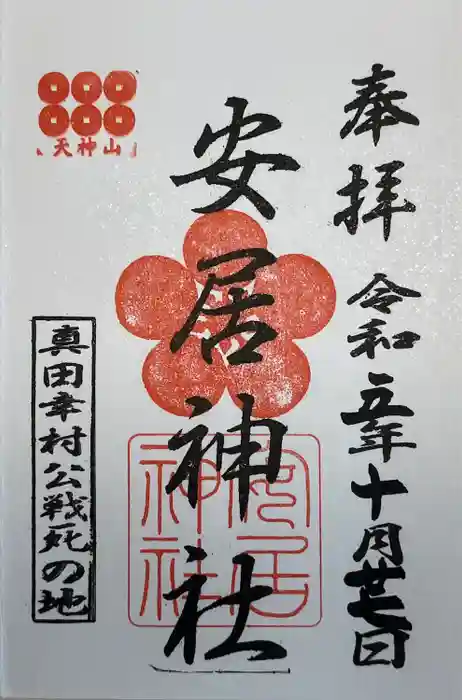 奉拝 令和五年十月廿七日
安居神社
天神山
真田幸村公戦死の地
安居
神社